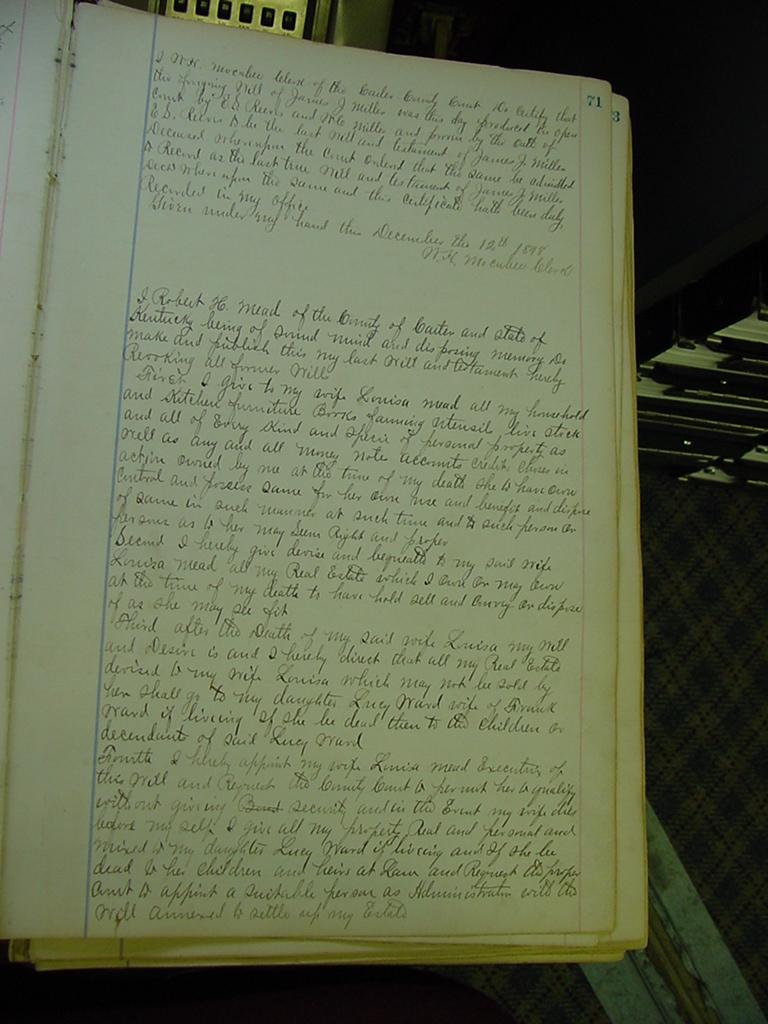 71
3
I W.H. McCabee Clerk of the Carter County Court Do Certify that
the forgoing Will of James J Miller was this day produced in open
Court by E.S. Reevs and W.C. Miller and proven by the oath of
E.S. Reevs to be the last Will and testament of James J. Miller
Deceased whereupon the Court Orderd that the same be admitted
to Record as the last true Will and testament of James J Miller
Decd whereupon the same and this certificate hath been duly
Recorded in my office
Given under my hand this December the 12th 1898
W.H. McCabee Clerk
I Robert H. Mead of the County of Carter and State of
Kentucky being of Sound mind and disposing memory Do
make and publish this my last Will and testament hereby
Revoking all former Will
First I give to my wife Louisa Mead all my household
and Kitchen furniture Books farming Utensil live stock
and all of Every Kind and Specie of personal property as
well as any and all money notes accounts credits choses in
action owned by me at the time of my death She to have own
Control and possess same for her own use and benefit and dispose
of same in such manner at such time and to such person or
persons as to her may Seem Right and proper
Second I hereby give devise and bequeath to my said Wife
Louisa Mead all my Real Estate which I own or may own
at the time of my death to have hold sell and convey or dispose
of as she may see fit
Third after the Death of my said wife Louisa my Will
and Desire is and I hereby direct that all my Real Estate
devised to my wife Louisa which may not be sold by
her Shall go to my daughter Lucy Ward wife of Frank
Ward if liveing If she be dead then to the children or
decendants of said Lucy Ward
Fourth I hereby appoint my wife Louisa Mead Executrix of
this Will and Request the County Court to permit her to qualify
without giveing Bond security and in the Event my wife dies
before my self I give all my property Real and personal and
mixed to my daughter Lucy Ward if liveing and If she be
dead to her children and heirs at Law and Request the proper
Court to appoint a suitable person as Administrator with the
Will annexed to settle up my Estate